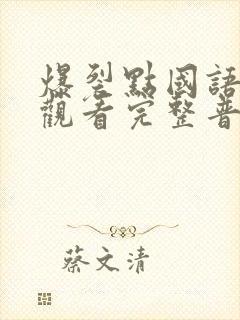 爆裂點國語
觀看完整普
蔡文清